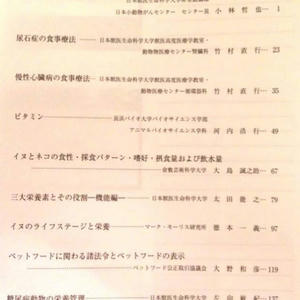 日本小動物がんセンター センター長 小林哲也… 1
尿石症の食事療法 日本獣医生命科学大学獣医高度医療学教室・
動物医療センター腎臓科 竹村直行… 23
慢性心臓病の食事療法 日本獣医生命科学大学獣医高度医療学教室・
動物医療センター循環器科 竹村直行… 35
ビタミン 長浜バイオ大学バイオサイエンス学部
アニマルバイオサイエンス学科 河内浩行… 49
イヌとネコの食性・採食パターン・嗜好・摂食量および飲水量
倉敷芸術科学大学 大島誠之助… 67
三大栄養素とその役割―機能編― 日本獣医生命科学大学 太田能之… 79
イヌのライフステージと栄養 マーク・モーリス研究所 徳本一義…
ペットフードに関わる諸法令とペットフードの表示
ペットフード公正取引協議会 大野和彦…119
糖尿病動物の栄養管理 日本獣医生命科学大学 左向敏紀…